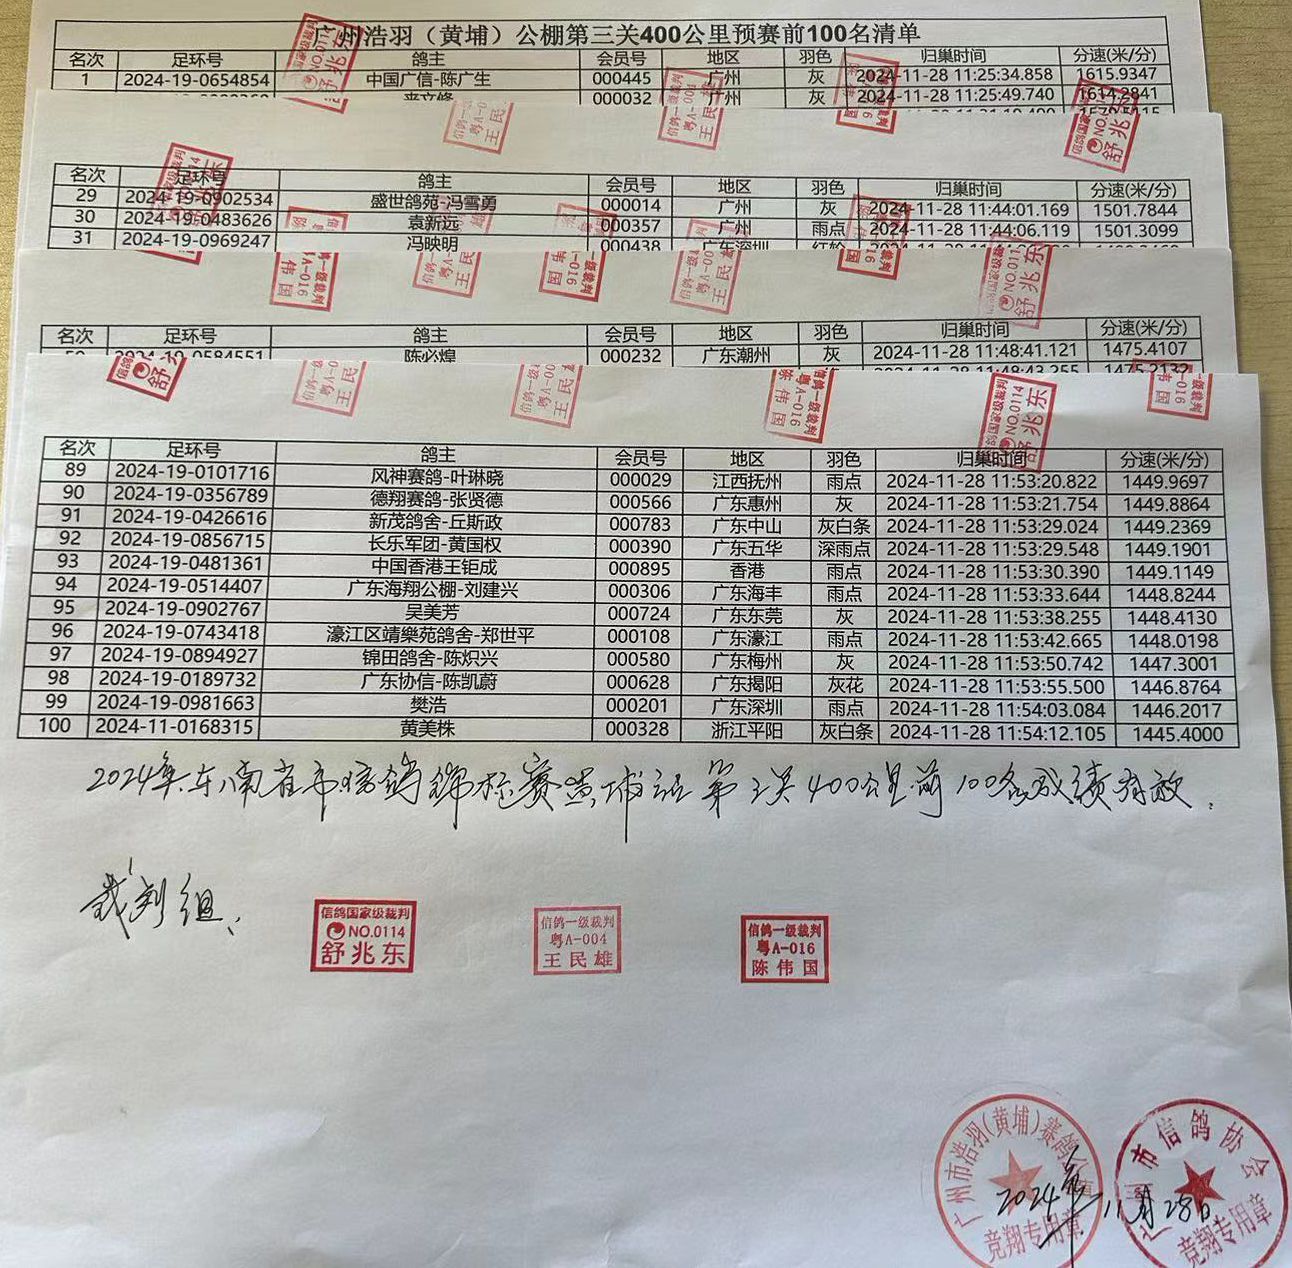 州浩羽（黄埔）公棚第三关400公里预赛前100名清单
名次 足环号 鸽主 会员号 地区 羽色 归巢时间 分速(米/分)
1 2024-19-0654854 中国广信-陈广生 000445 广州 灰 2024-11-28 11:25:34.858 1615.9347
000032 广州 灰 2024-11-28 11:25:49.740 1614.2841
名次 足环号 鸽主 会员号 地区 羽色 归巢时间 分速(米/分)
29 2024-19-0902534 盛世鸽苑-冯雪勇 000014 广州 灰 2024-11-28 11:44:01.169 1501.7844
30 2024-19-0483626 袁新远 000357 广州 雨点 2024-11-28 11:44:06.119 1501.3099
31 2024-19-0969247 冯映明 000438 广东深圳
名次 足环号 鸽主 会员号 地区 羽色 归巢时间 分速(米/分)
2024-19-0584551 陈必煌 000232 广东潮州 灰 2024-11-28 11:48:41.121 1475.4107
2024-11-28 11:48:43.255 1475.2132
名次 足环号 鸽主 会员号 地区 羽色 归巢时间 分速(米/分)
89 2024-19-0101716 风神赛鸽-叶琳晓 000029 江西抚州 雨点 2024-11-28 11:53:20.822 1449.9697
90 2024-19-0356789 德翔赛鸽-张贤德 000566 广东惠州 灰 2024-11-28 11:53:21.754 1449.8864
91 2024-19-0426616 新茂鸽舍-丘斯政 000783 广东中山 灰白条 2024-11-28 11:53:29.024 1449.2369
92 2024-19-0856715 长乐军团-黄国权 000390 广东五华 深雨点 2024-11-28 11:53:29.548 1449.1901
93 2024-19-0481361 中国香港王钜成 000895 香港 雨点 2024-11-28 11:53:30.390 1449.1149
94 2024-19-0514407 广东海翔公棚-刘建兴 000306 广东海丰 雨点 2024-11-28 11:53:33.644 1448.8244
95 2024-19-0902767 吴美芳 000724 广东东莞 灰 2024-11-28 11:53:38.255 1448.4130
96 2024-19-0743418 濠江区靖樂苑鸽舍-郑世平 000108 广东濠江 雨点 2024-11-28 11:53:42.665 1448.0198
97 2024-19-0894927 锦田鸽舍-陈炽兴 000580 广东梅州 灰 2024-11-28 11:53:50.742 1447.3001
98 2024-19-0189732 广东协信-陈凯蔚 000628 广东揭阳 灰花 2024-11-28 11:53:55.500 1446.8764
99 2024-19-0981663 樊浩 000201 广东深圳 雨点 2024-11-28 11:54:03.084 1446.2017
100 2024-11-0168315 黄美株 000328 浙江平阳 灰白条 2024-11-28 11:54:12.105 1445.4000
2024年东南省市信鸽锦标赛黄埔站第三关400公里前100名成绩有效.
裁判组、
信鸽国家级裁判 NO.0114 舒兆东
信鸽一级裁判 粤A-004 王民雄
信鸽一级裁判 粤A-016 陈伟国
广州市浩羽(黄埔)赛鸽公棚 竞翔专用章
广州市信鸽协会 竞翔专用章
2024年11月28日